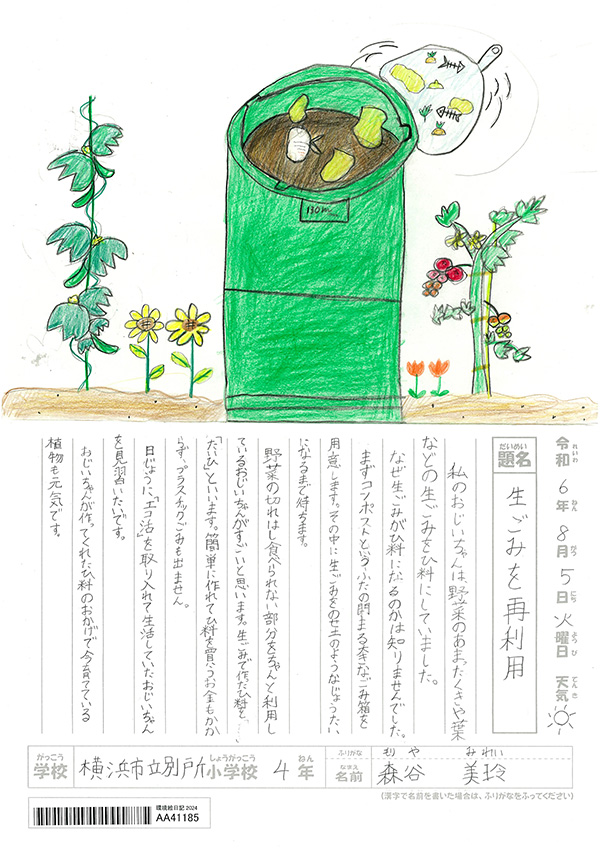 130mm
令和6年8月5日火曜日 天気
れいわ ねん がつ にち ようび てんき
題名 生ごみを再利用
だいめい
私のおじいちゃんは、野菜のあまったくきや葉
などの生ごみをひ料にしていました。
なぜ生ごみがひ料になるのかは知りませんでした。
まずコンポストというふたの閉まる大きなごみ箱を
用意します。その中に生ごみをのせ土のようなじょうたい
になるまで待ちます。
野菜の切れはし食べられない部分をちゃんと利用し
ているおじいちゃんがすごいと思います。生ごみで作ったひ料を、
「たいひ」といいます。簡単に作れてひ料を買うお金もかか
らず、プラスチックごみも出ません。
日じょうに「エコ活」を取り入れて生活していたおじいちゃん
を見習いたいです。
おじいちゃんが作ってくれたひ料のおかげで今育てている
植物も元気です。
がっこう しょうがっこう ねん
学校 横浜市立別所小学校 4年
ふりがな もりや みれい
なまえ
名前 森谷 美玲
(漢字で名前を書いた場合は、ふりがなをふってください)
環境絵日記2024
AA41185